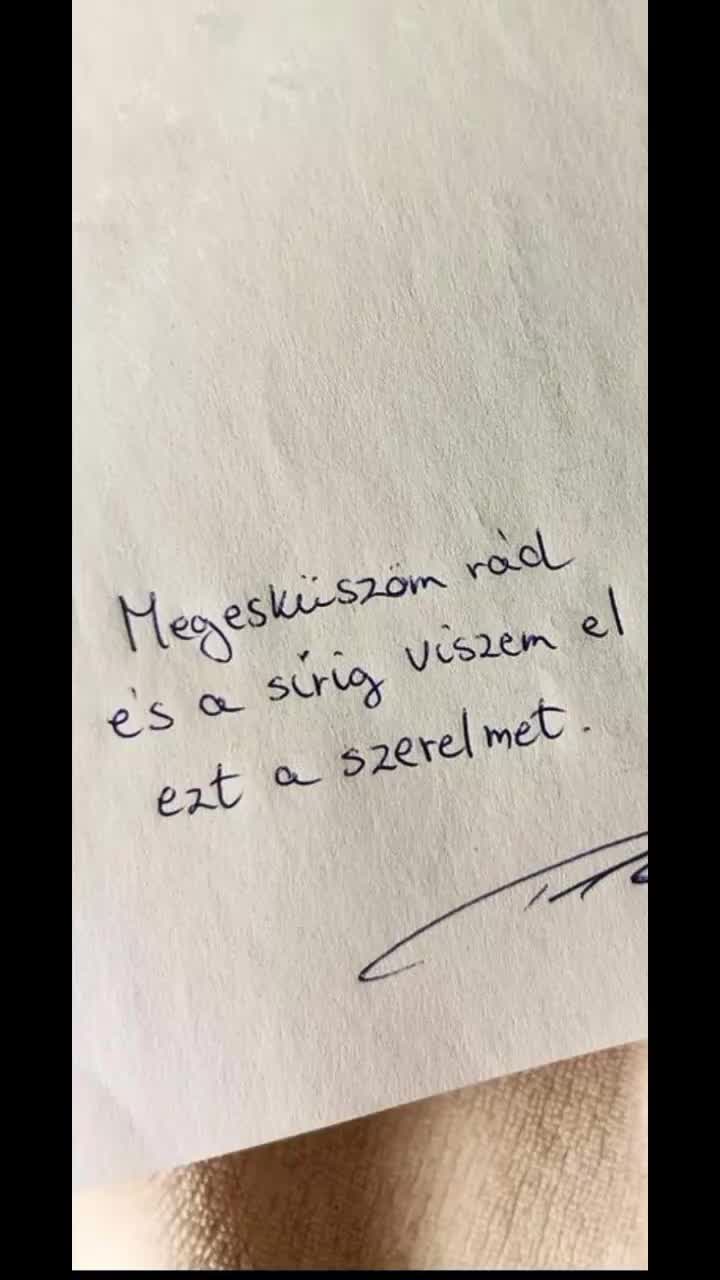 Megesküszöm rád
és a sírig viszem el
ezt a szerelmet.